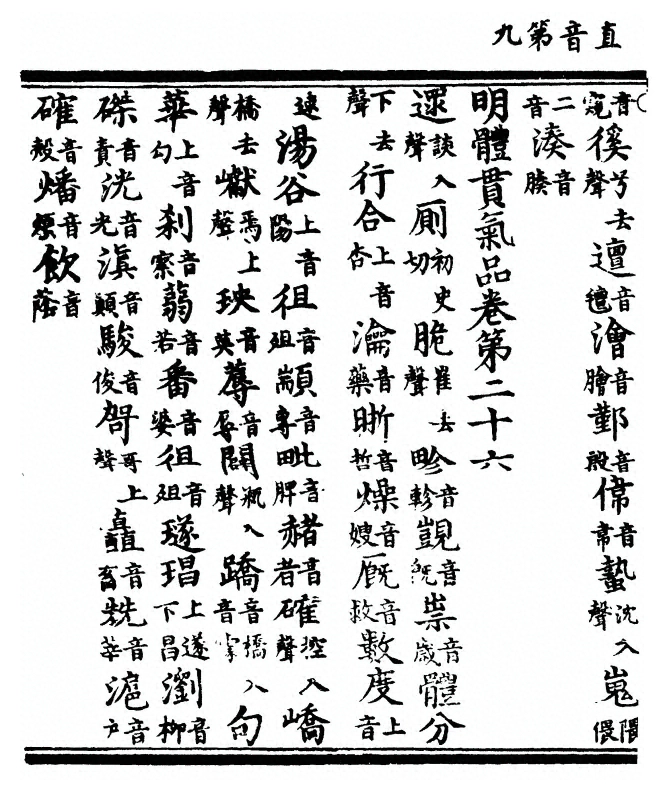 直音第九
音窺徯兮去聲邅音氊澮音膾鄞音殷音常蟄沈入聲嵬隈偎
二音湊音腠
明體貫氣品卷第二十六
遝談入聲廁初史切脆崔去聲畛音軫覬音旣祟音歲體分
下去聲行合上音杏瀹音藥晣音哲燥音嫂廐音救數度上音
速湯谷上音陽徂音殂顓音專毗音脾赭音者確控入聲嶠
橋去聲巘焉上聲瑛音英蓐音辱闢瓶入聲蹻音橋入音句
華上音勾刹音察蒻音若番音婆徂音殂璲琩上遂下昌瀏音柳
磔音責洸音光滇音顛駿音俊哿哥上聲矗音畜兟音莘滬音戶
確音殼燔音煩飲音蔭